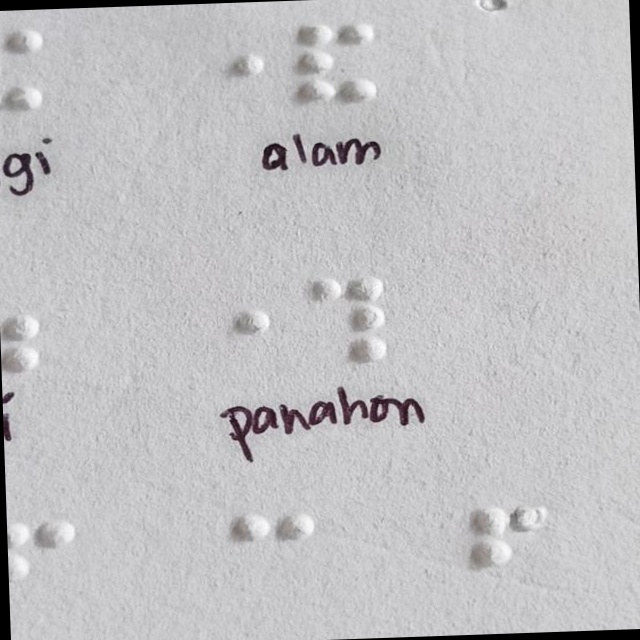 ⠐⠯
gi alam
⠐⠹
panahon
⠉ ⠋